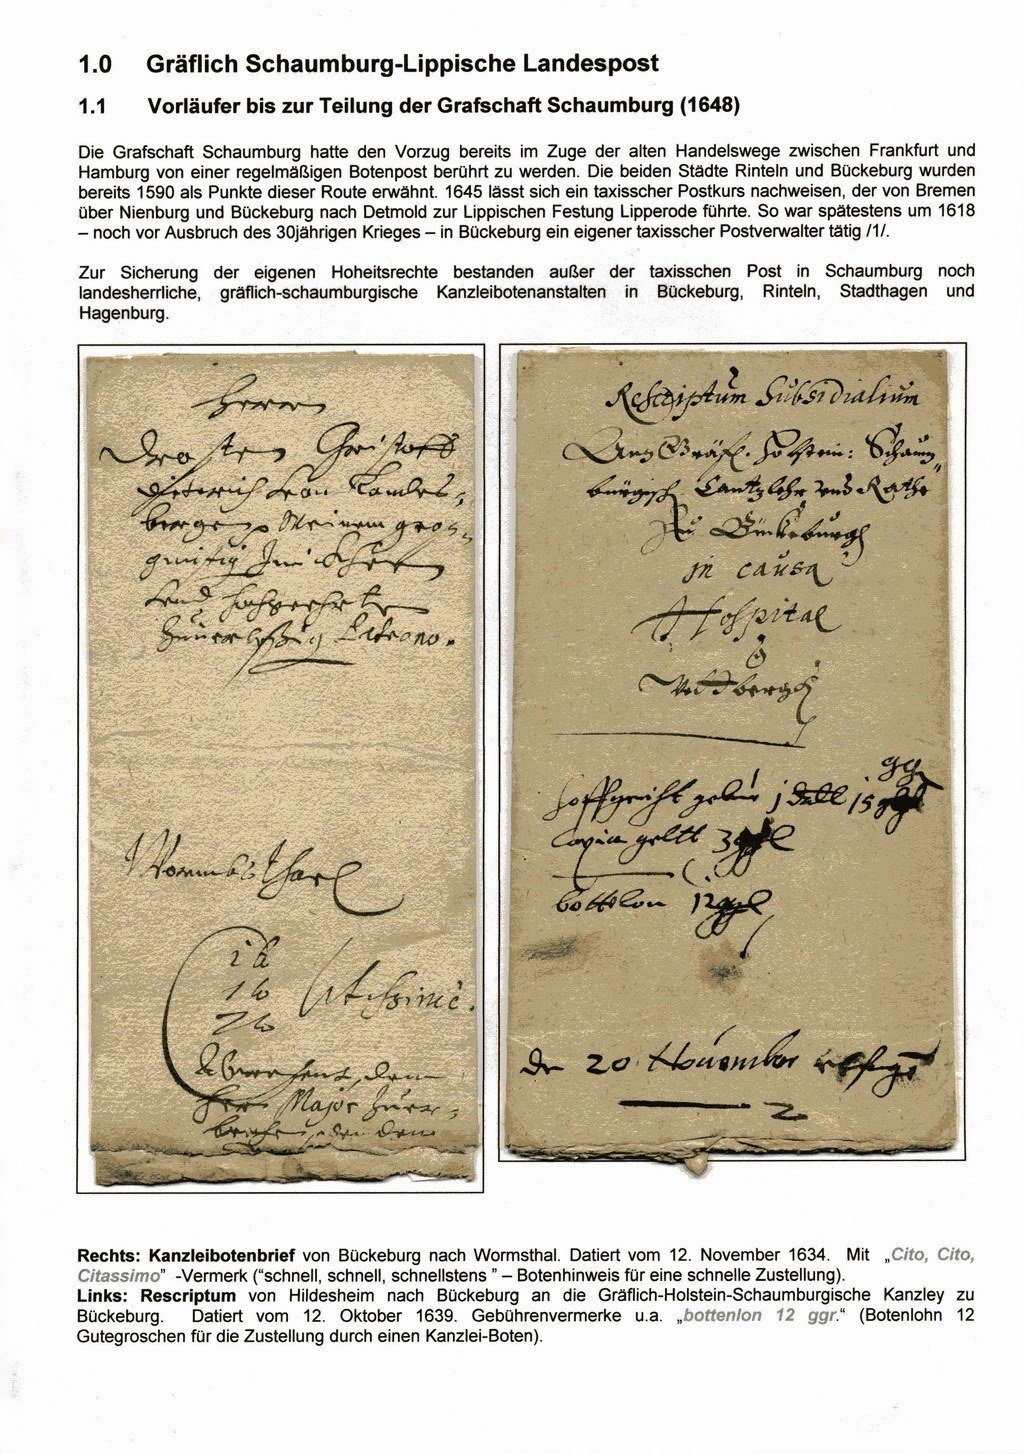 1.0 Gräflich Schaumburg-Lippische Landespost
1.1 Vorläufer bis zur Teilung der Grafschaft Schaumburg (1648)
Die Grafschaft Schaumburg hatte den Vorzug bereits im Zuge der alten Handelswege zwischen Frankfurt und
Hamburg von einer regelmäßigen Botenpost berührt zu werden. Die beiden Städte Rinteln und Bückeburg wurden
bereits 1590 als Punkte dieser Route erwähnt. 1645 lässt sich ein taxisscher Postkurs nachweisen, der von Bremen
über Nienburg und Bückeburg nach Detmold zur Lippischen Festung Lipperode führte. So war spätestens um 1618
– noch vor Ausbruch des 30jährigen Krieges – in Bückeburg ein eigener taxisscher Postverwalter tätig /1/.
Zur Sicherung der eigenen Hoheitsrechte bestanden außer der taxisschen Post in Schaumburg noch
landesherrliche, gräflich-schaumburgische Kanzleibotenanstalten in Bückeburg, Rinteln, Stadthagen und
Hagenburg.
Herrn
Drosten Christoff
Dieterich
Meinem
Wormbsthael
Citissime.
Major
Rescriptum Subsidialium
Ahn Gräfl. Holstein: Schaum
burgisch Cantzlehr und Rathe
Zu Bückeburgh
in causa
Hospital
hoffgericht gebür 15
copia geltt 3
bottelon 12 ggl
Den 20 November
Rechts: Kanzleibotenbrief von Bückeburg nach Wormsthal. Datiert vom 12. November 1634. Mit „Cito, Cito,
Citassimo” -Vermerk (“schnell, schnell, schnellstens ” – Botenhinweis für eine schnelle Zustellung).
Links: Rescriptum von Hildesheim nach Bückeburg an die Gräflich-Holstein-Schaumburgische Kanzley zu
Bückeburg. Datiert vom 12. Oktober 1639. Gebührenvermerke u.a. „bottenlon 12 ggr.“ (Botenlohn 12
Gutegroschen für die Zustellung durch einen Kanzlei-Boten).